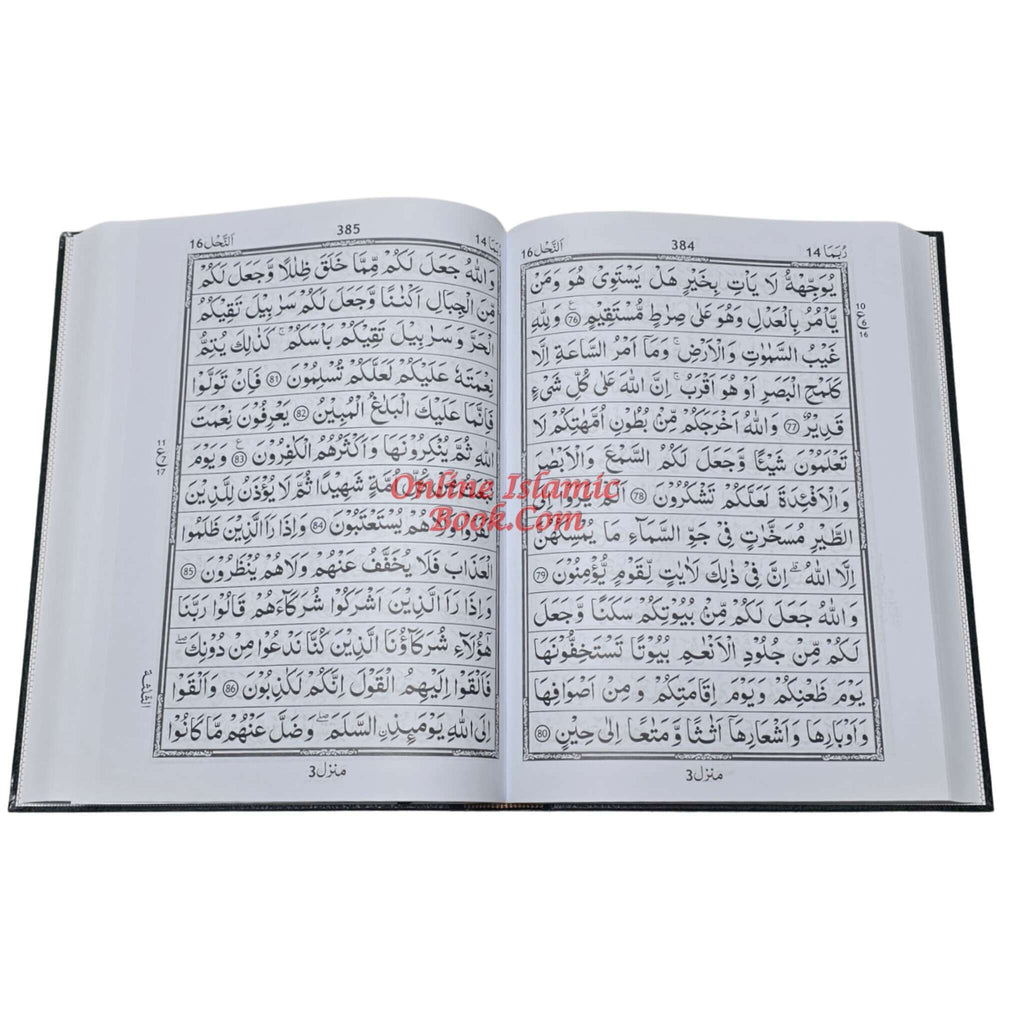 رُبَمَا 14
384
اَلنَّحْل 16
يُوَجِّهْهُّ لَا يَاْتِ بِخَيْرٍ هَلْ يَسْتَوِىْ هُوَ وَمَنْ
يَّاْمُرُ بِالْعَدْلِ وَهُوَ عَلٰى صِرٰطٍ مُّسْتَقِيْمٍ 76 وَلِلّٰهِ
غَيْبُ السَّمٰوٰتِ وَالْاَرْضِ ۚ وَمَاۤ اَمْرُ السَّاعَةِ اِلَّا
كَلَمْحِ الْبَصَرِ اَوْ هُوَ اَقْرَبُ ۚ اِنَّ اللّٰهَ عَلٰى كُلِّ شَىْءٍ
قَدِيْرٌ 77 وَاللّٰهُ اَخْرَجَكُمْ مِّنْۢ بُطُوْنِ اُمَّهٰتِكُمْ لَا
تَعْلَمُوْنَ شَيْـًٔا وَّجَعَلَ لَكُمُ السَّمْعَ وَالْاَبْصٰرَ
وَالْاَفْـِٕدَةَ لَعَلَّكُمْ تَشْكُرُوْنَ 78 اَلَمْ يَرَوْا اِلَى
الطَّيْرِ مُسَخَّرٰتٍ فِىْ جَوِّ السَّمَآءِ مَا يُمْسِكُهُنَّ
اِلَّا اللّٰهُ ؕ اِنَّ فِىْ ذٰلِكَ لَاٰيٰتٍ لِّقَوْمٍ يُّؤْمِنُوْنَ 79
وَاللّٰهُ جَعَلَ لَكُمْ مِّنْۢ بُيُوْتِكُمْ سَكَنًا وَّجَعَلَ
لَكُمْ مِّنْ جُلُوْدِ الْاَنْعٰمِ بُيُوْتًا تَسْتَخِفُّوْنَهَا
يَوْمَ ظَعْنِكُمْ وَيَوْمَ اِقَامَتِكُمْ وَمِنْ اَصْوَافِهَا
وَاَوْبَارِهَا وَاَشْعَارِهَاۤ اَثٰثًا وَّمَتٰعًا اِلٰى حِيْنٍ 80
منزل 3
10
ع 6
16
14
385
اَلنَّحْل 16
وَاللّٰهُ جَعَلَ لَكُمْ مِّمَّا خَلَقَ ظِلٰلًا وَّجَعَلَ لَكُمْ
مِّنَ الْجِبَالِ اَكْنٰنًا وَّجَعَلَ لَكُمْ سَرٰبِيْلَ تَقِيْكُمُ
الْحَرَّ وَسَرٰبِيْلَ تَقِيْكُمْ بَاْسَكُمْ ؕ كَذٰلِكَ يُتِمُّ
نِعْمَتَهٗ عَلَيْكُمْ لَعَلَّكُمْ تُسْلِمُوْنَ 81 فَاِنْ تَوَلَّوْا
فَاِنَّمَا عَلَيْكَ الْبَلٰغُ الْمُبِيْنُ 82 يَعْرِفُوْنَ نِعْمَتَ
اللّٰهِ ثُمَّ يُنْكِرُوْنَهَا وَاَكْثَرُهُمُ الْكٰفِرُوْنَ 83 وَيَوْمَ
نَبْعَثُ مِنْ كُلِّ اُمَّةٍ شَهِيْدًا ثُمَّ لَا يُؤْذَنُ لِلَّذِيْنَ
كَفَرُوْا وَلَا هُمْ يُسْتَعْتَبُوْنَ 84 وَاِذَا رَاَ الَّذِيْنَ ظَلَمُوا
الْعَذَابَ فَلَا يُخَفَّفُ عَنْهُمْ وَلَا هُمْ يُنْظَرُوْنَ 85
وَاِذَا رَاَ الَّذِيْنَ اَشْرَكُوْا شُرَكَآءَهُمْ قَالُوْا رَبَّنَا
هٰٓؤُلَآءِ شُرَكَآؤُنَا الَّذِيْنَ كُنَّا نَدْعُوْا مِنْ دُوْنِكَ ۚ
فَاَلْقَوْا اِلَيْهِمُ الْقَوْلَ اِنَّكُمْ لَكٰذِبُوْنَ 86 وَاَلْقَوْا
اِلَى اللّٰهِ يَوْمَىِٕذِ ࣙالسَّلَمَ وَضَلَّ عَنْهُمْ مَّا كَانُوْا
منزل 3
11
ع 7
17
الثلثة
Online Islamic
Book.Com